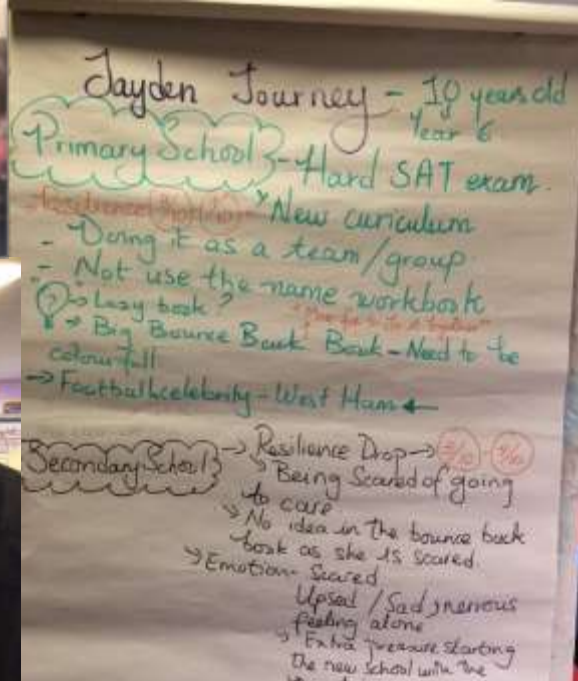 Jayden Journey - 10 years old
Year 6
Primary School - Hard SAT exam.
New curiculum
- Doing it as a team/group
- Not use the name workbook
→ Lazy book?
→ Big Bounce Back Book - Need to be
colourfull
→ Football celebrity - West Ham ←
Secondary School → Resilience Drop →
Being Scared of going
to care
No idea in the bounce back
book as she is scared.
Emotion - Scared
Upset / Sad, nervous
feeling alone
Extra pressure starting
the new school with the